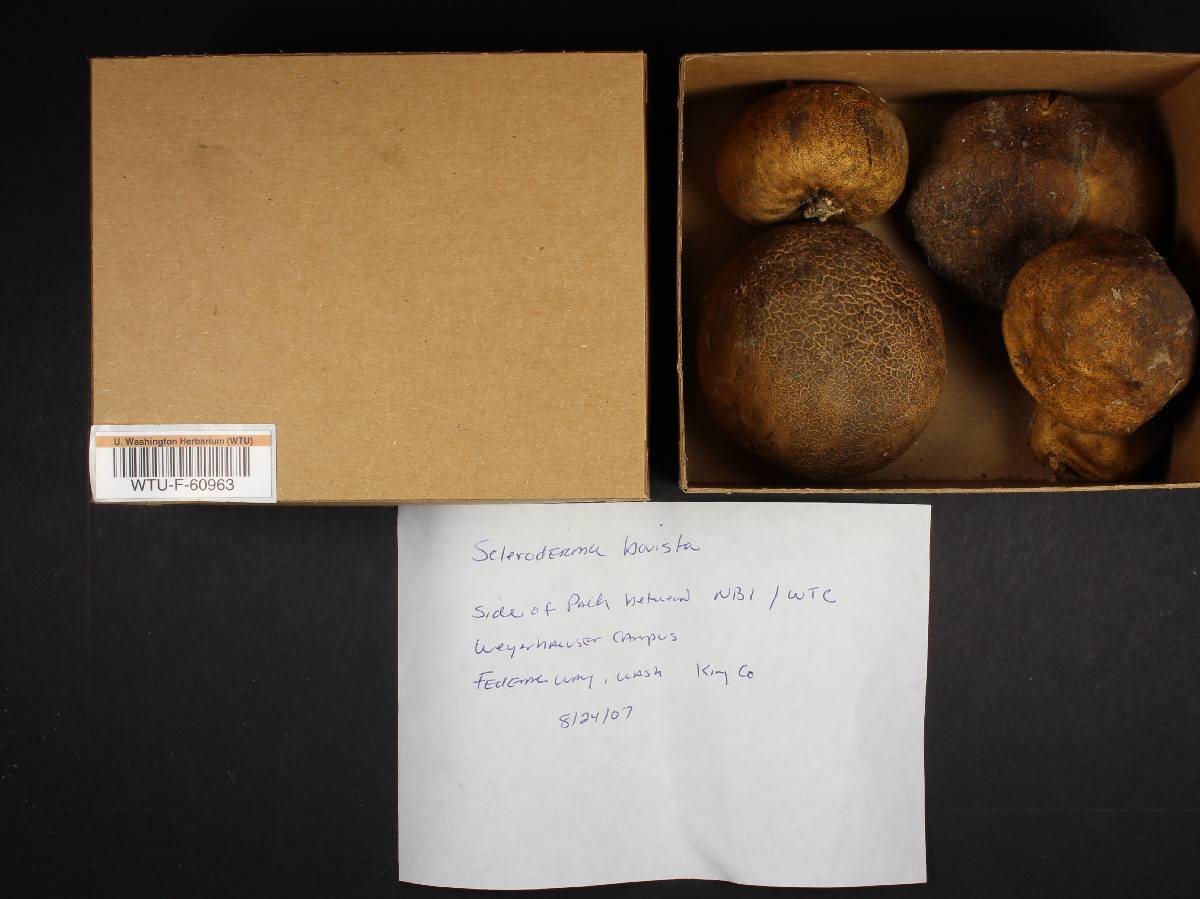 U. Washington Herbarium (WTU)
WTU-F-60963
Scleroderma bovista
Side of Path between NB1 / WTC
Weyerhauser Campus
Federal Way, Wash King Co
8/24/07